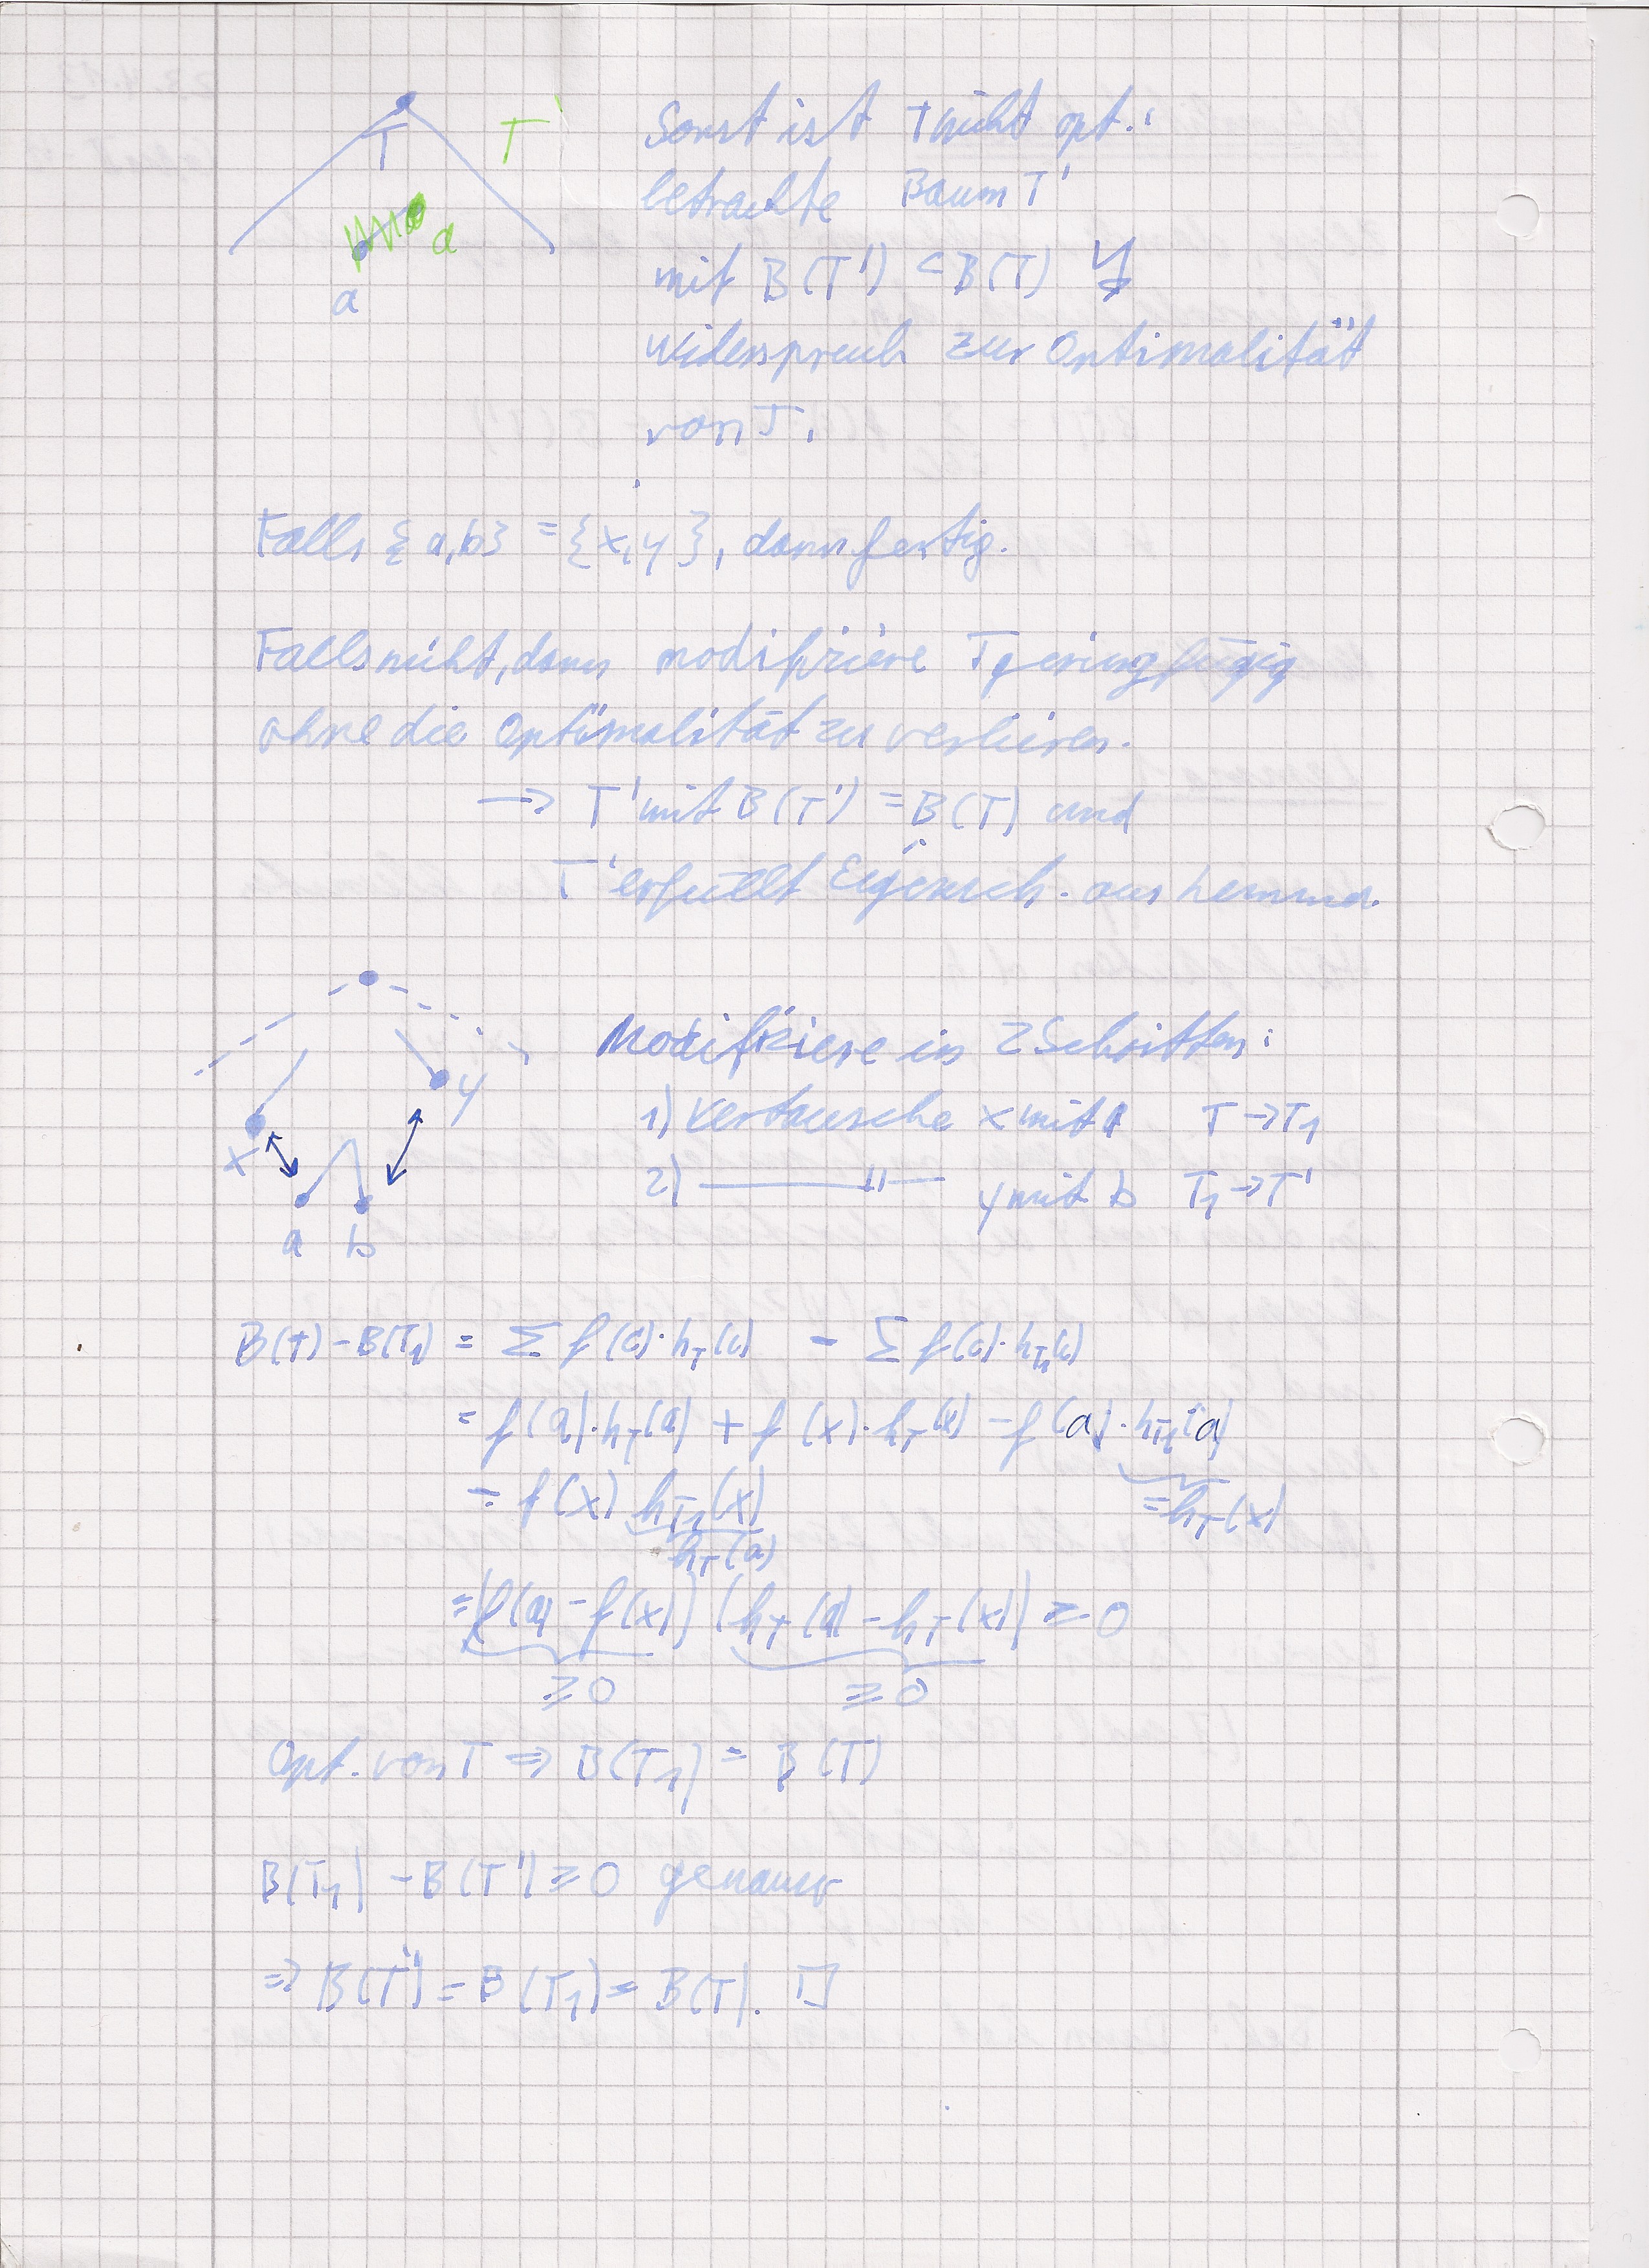 T T'
a
a
Sonst ist T nicht opt.:
betrachte Baum T'
mit B(T') < B(T) ↯
Widerspruch zur Optimalität
von T.
Falls {a,b} = {x,y}, dann fertig.
Falls nicht, dann modifiziere T geringfügig
ohne die Optimalität zu verlieren.
→ T' mit B(T') = B(T) und
T' erfüllt Eigensch. aus Lemma.
x y
a b
Modifiziere in 2 Schritten:
1) Vertausche x mit a T → T₁
2) —— " — y mit b T₁ → T'
B(T) - B(T₁) = Σ f(c)·h_T(c) - Σ f(c)·h_T₁(c)
= f(a)·h_T(a) + f(x)·h_T(x) - f(a)·h_T₁(a)
- f(x) h_T₁(x) = h_T(x)
h_T(a)
= (f(a) - f(x)) (h_T(a) - h_T(x)) ≥ 0
≥ 0 ≥ 0
Opt. von T ⇒ B(T₁) = B(T)
B(T₁) - B(T') ≥ 0 genauso
⇒ B(T') = B(T₁) = B(T). □